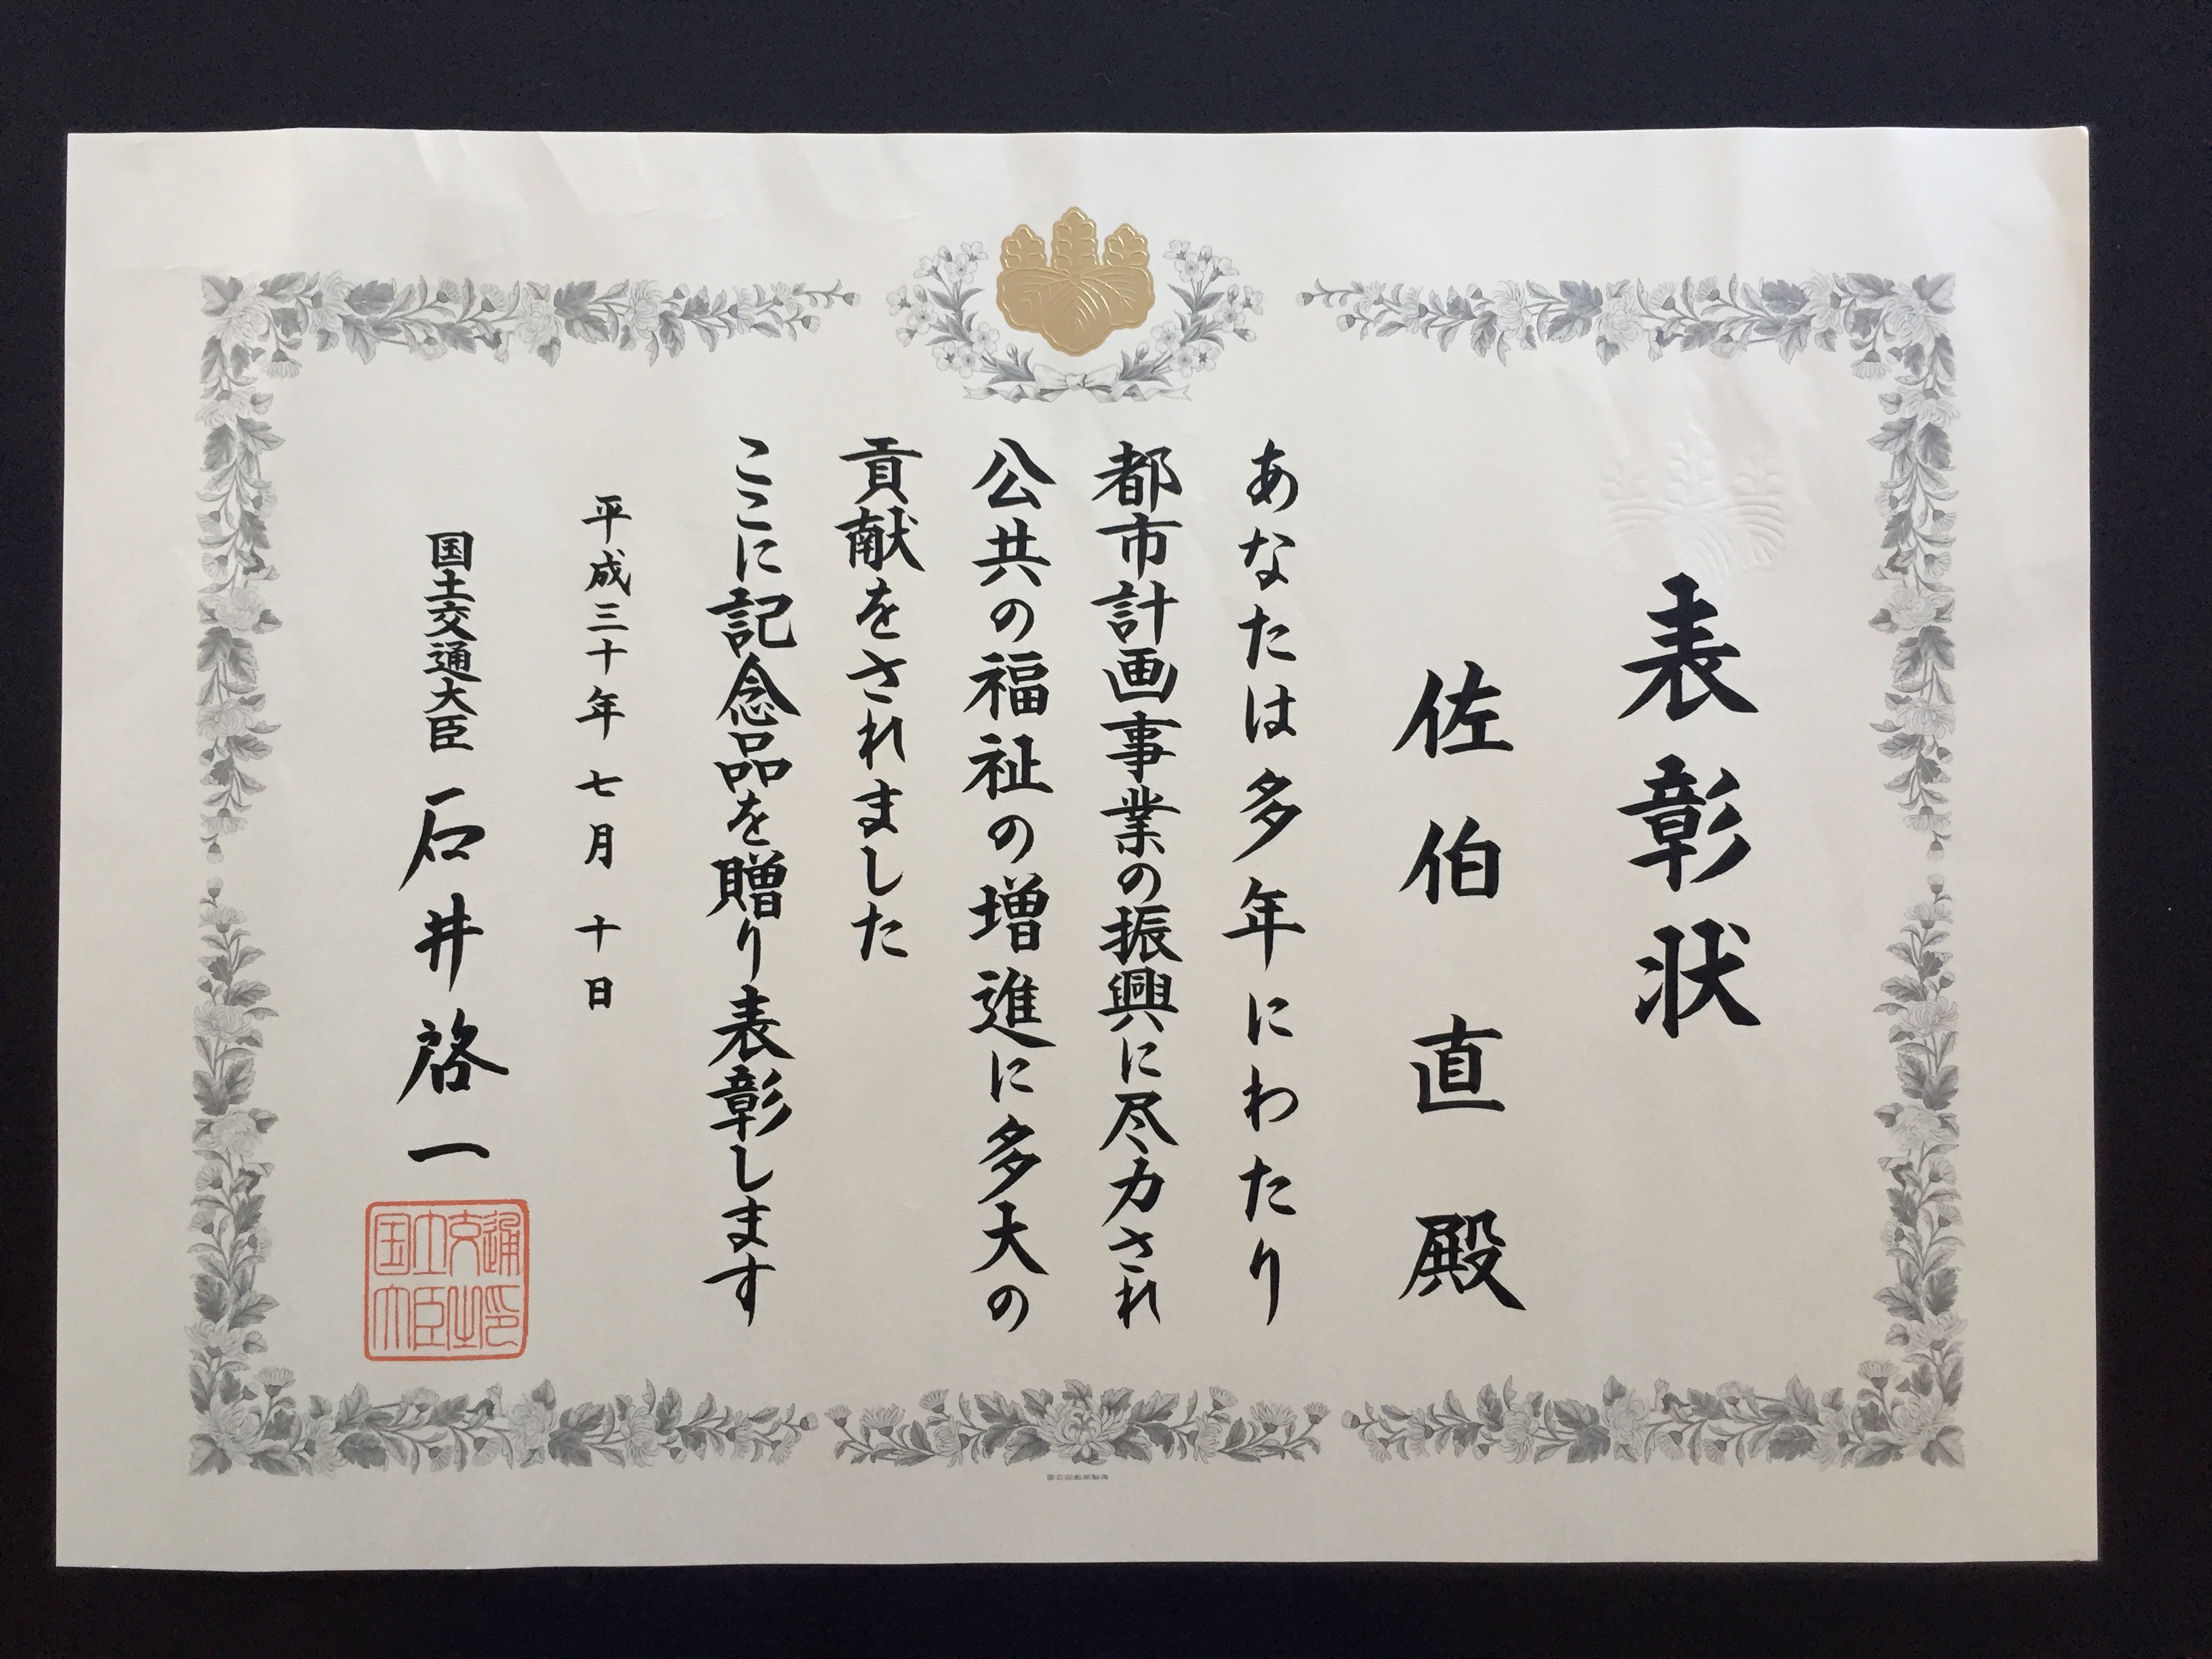 表彰状
佐伯直殿
あなたは多年にわたり
都市計画事業の振興に尽力され
公共の福祉の増進に多大の
貢献をされました
ここに記念品を贈り表彰します
平成三十年七月十日
国土交通大臣 石井啓一
国土交通
大臣之印